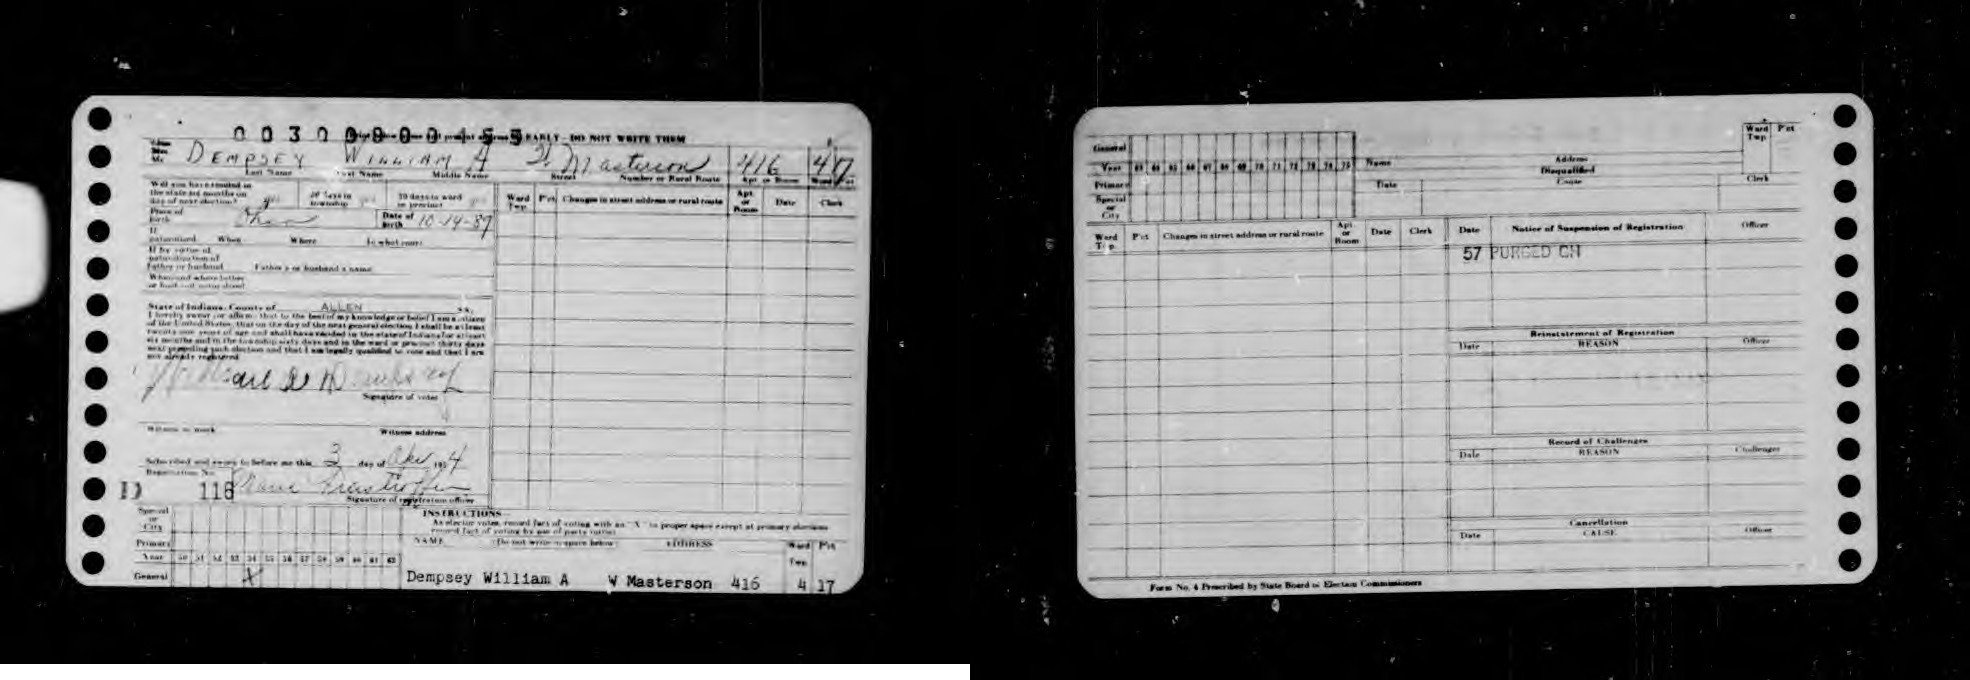 00300800455
EARLY - DO NOT WRITE THEM
DEMPSEY WILLIAM A W. Masterson 416 4 17
Last Name First Name Middle Name Street Number or Rural Route Apt. or Room Ward Pct
Will you have resided in
the state six months on
day of next election? yes
60 days in
township yes
30 days in ward
or precinct yes
Place of
birth Ohio
Date of
birth 10-14-87
If
naturalized When Where In what court
If by virtue of
naturalization of
father or husband Father's or husband's name
When and where father
or husband naturalized
State of Indiana, County of ALLEN SS:
I hereby swear or affirm that to the best of my knowledge or belief I am a citizen
of the United States, that on the day of the next general election I shall be at least
twenty one years of age and shall have resided in the state of Indiana for at least
six months and in the township sixty days and in the ward or precinct thirty days
next preceding such election and that I am legally qualified to vote and that I am
not already registered
Dempsey
Signature of voter
Witness to mark Witness address
Subscribed and sworn to before me this 3 day of 1954
Registration No.
D 116 Marie
Signature of registration officer
Ward
Twp. Pct. Changes in street address or rural route Apt.
or
Room Date Clerk
Special
or
City
Primary
Year 50 51 52 53 54 55 56 57 58 59 60 61 62
General X
INSTRUCTIONS
As elector votes, record fact of voting with an "X" in proper space except at primary elections
record fact of voting by use of party initial
NAME (Do not write in space below) ADDRESS Ward
Twp. Pct.
Dempsey William A W Masterson 416 4 17
General
Year 63 64 65 66 67 68 69 70 71 72 73 74 75
Primary
Special
or
City
Name Address Ward
Twp. Pct
Disqualified
Date Cause Clerk
Ward
Twp. Pct Changes in street address or rural route Apt.
or
Room Date Clerk
Date Notice of Suspension of Registration Officer
57 PURGED CH
Reinstatement of Registration
Date REASON Officer
Record of Challenges
Date REASON Challenger
Cancellation
Date CAUSE Officer
Form No. 4 Prescribed by State Board of Election Commissioners